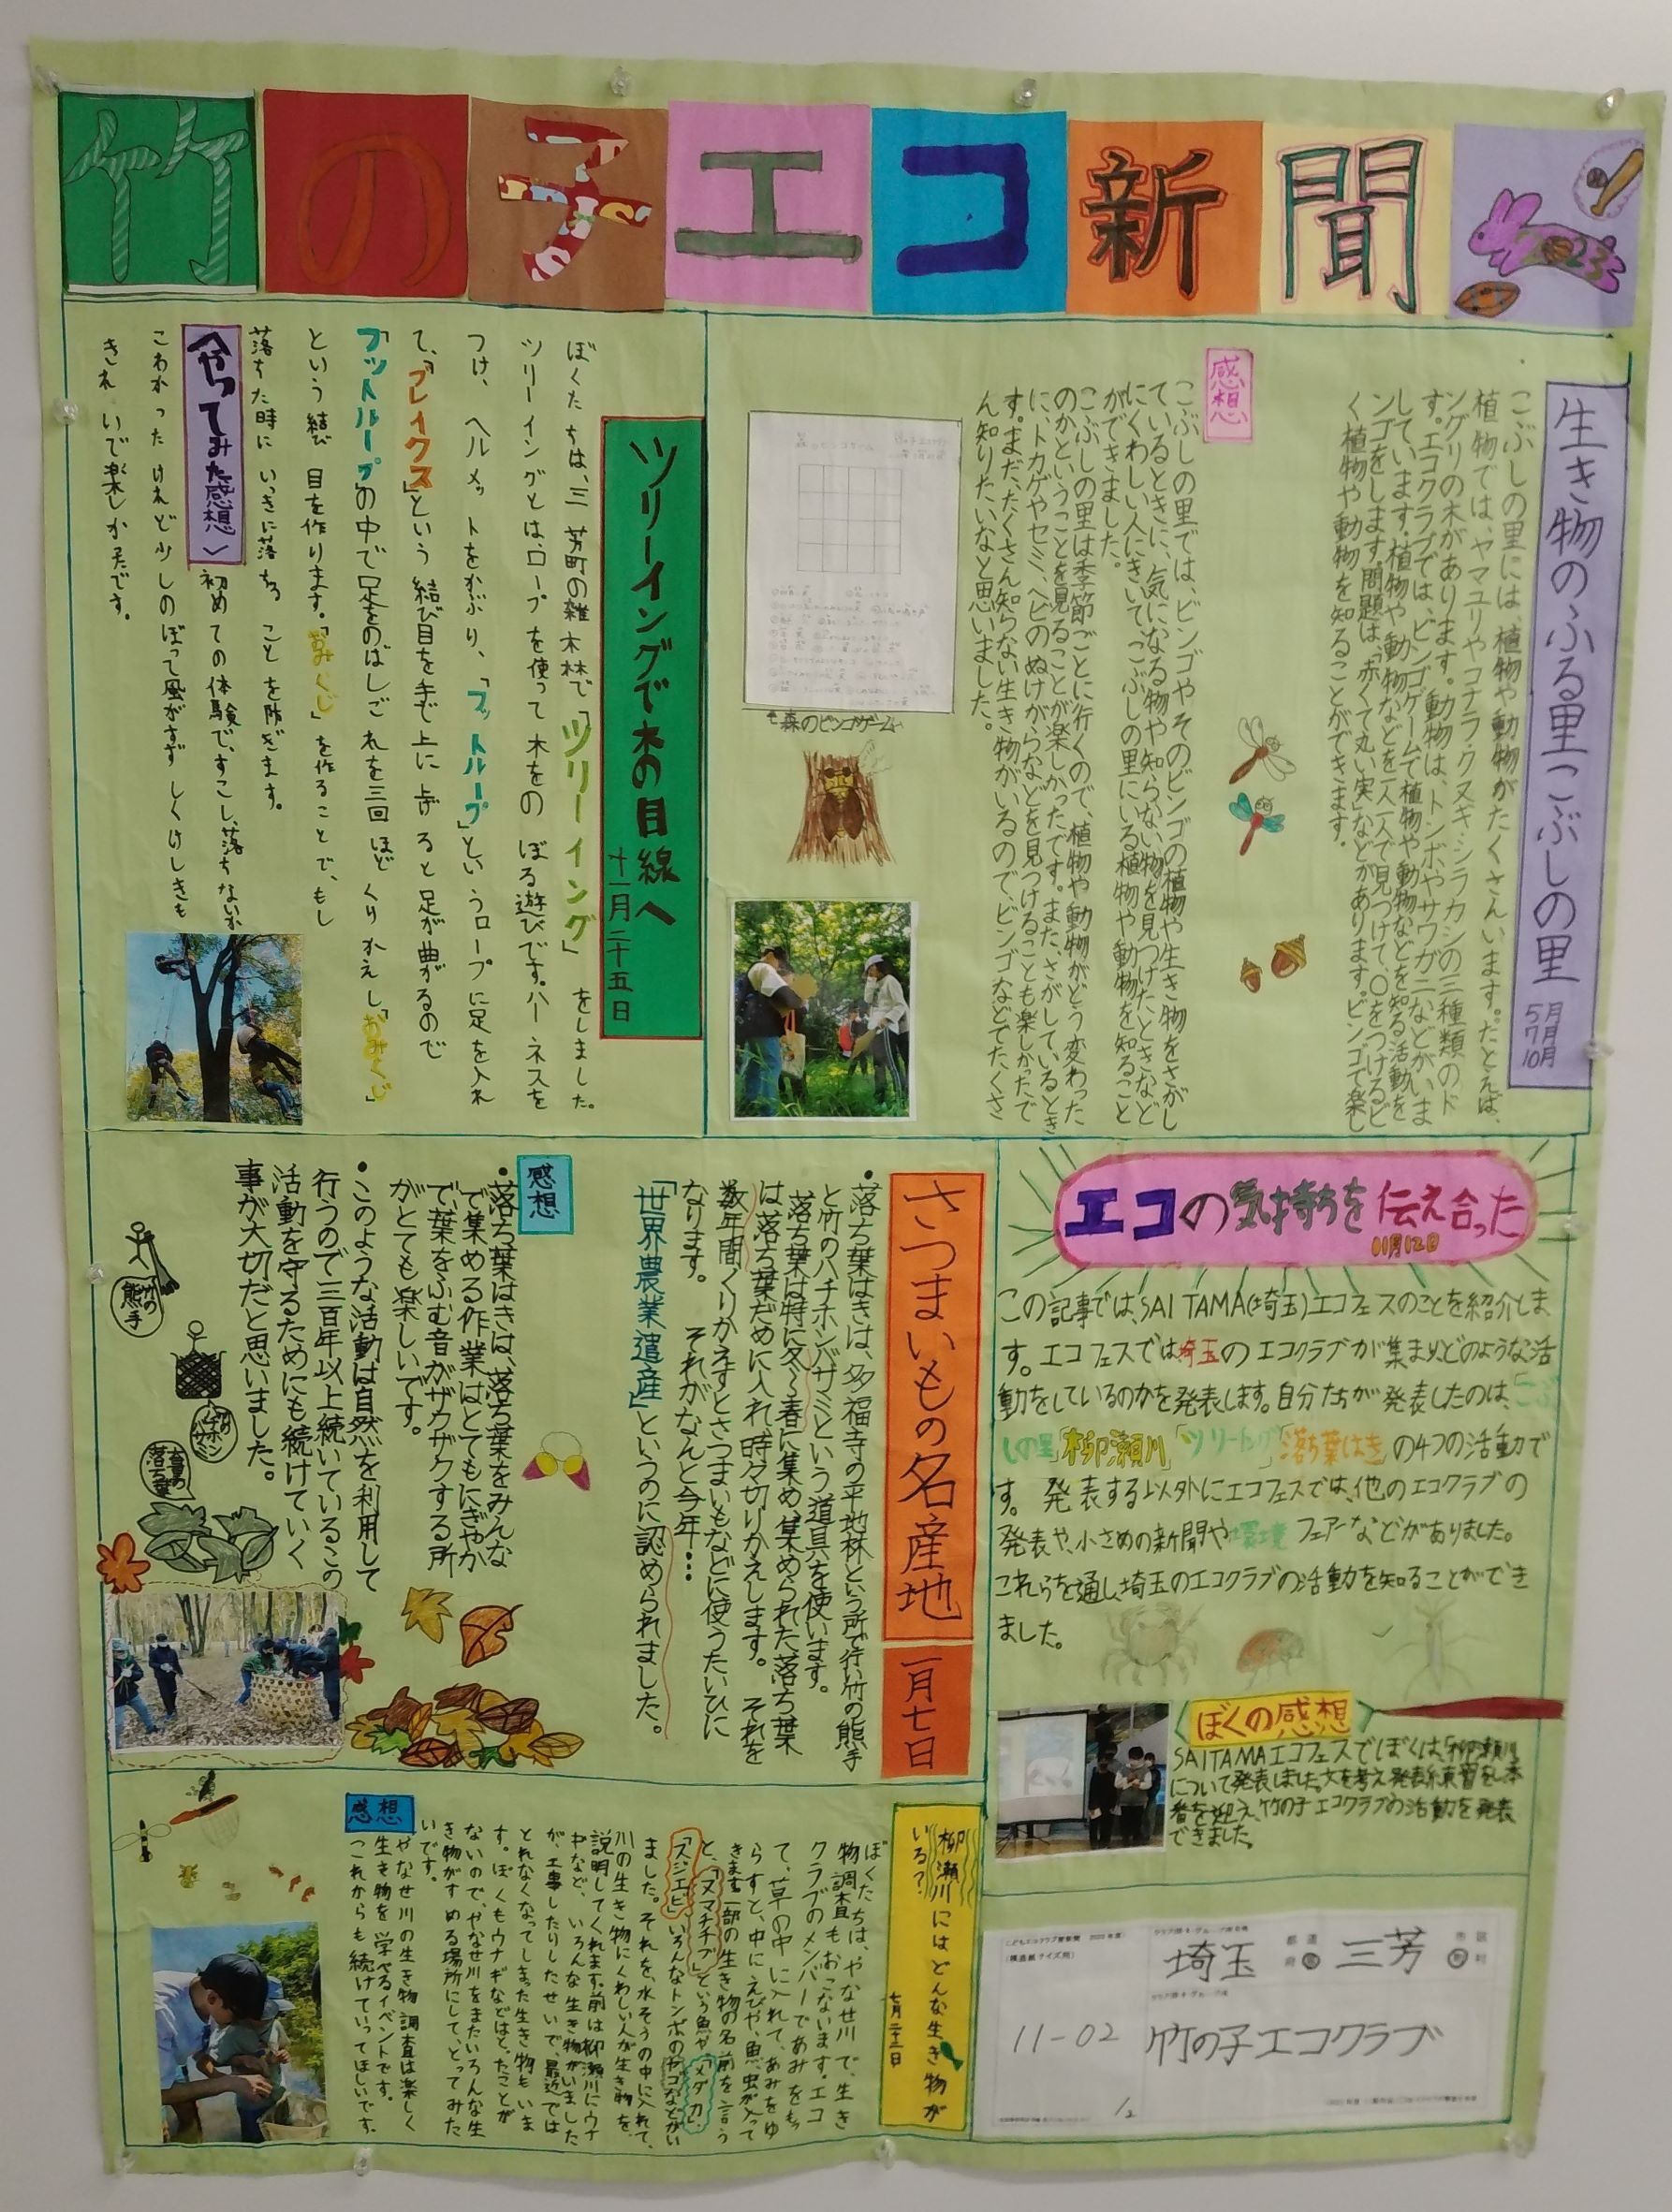 竹の子エコ新聞
生き物のふる里こぶしの里
5月
7月
10月
こぶしの里には、植物や動物がたくさんいます。たとえば、
植物では、ヤマユリやコナラ・クヌギ・シラカシの三種類のド
ングリの木があります。動物は、トンボやサワガニなどがいま
す。エコクラブでは、ビンゴゲームで植物や動物などを知る活動を
しています。植物や動物などを一人一人で見つけて、〇をつけるビ
ンゴをします。問題は、「赤くて丸い実」などがあります。ビンゴで楽し
く植物や動物を知ることができます。
感想
こぶしの里では、ビンゴやそのビンゴの植物や生き物をさがし
ているときに、気になる物や知らない物を見つけたときなど
にくわしい人にきいてこぶしの里にいる植物や動物を知ること
ができました。
こぶしの里は季節ごとに行くので、植物や動物がどう変わった
のかということを見ることが楽しかったです。また、さがしているとき
に、トカゲやセミ、ヘビのぬけがらなどを見つけることも楽しかったで
す。まだ、たくさん知らない生き物がいるので、ビンゴなどでたくさ
ん知りたいなと思いました。
森のビンゴゲーム
ツリーイングで木の目線へ
十一月二十五日
ぼくたちは、三芳町の雑木林で「ツリーイング」をしました。
ツリーイングとは、ロープを使って木をのぼる遊びです。ハーネスを
つけ、ヘルメットをかぶり、「フットループ」というロープに足を入れ
て、「ブレイクス」という結び目を手で上に上げると足が曲がるので
「フットループ」の中で足をのばしこれを三回ほどくりかえし「おみくじ」
という結び目を作ります。「おみくじ」を作ることで、もし
落ちた時にいっきに落ちることを防ぎます。
〈やってみた感想〉
初めての体験で、すこし、落ちないか
こわかったけれど少しのぼって風がすずしくけしきも
きれいで楽しかったです。
エコの気持ちを伝え合った
11月12日
この記事では、SAITAMA(埼玉)エコフェスのことを紹介しま
す。エコフェスでは埼玉のエコクラブが集まり、どのような活
動をしているのかを発表します。自分たちが発表したのは、「こぶ
しの里」「柳瀬川」「ツリーイング」「落ち葉はき」の4つの活動で
す。発表する以外にエコフェスでは、他のエコクラブの
発表や、小さめの新聞や環境フェアーなどがありました。
これらを通し、埼玉のエコクラブの活動を知ることができ
ました。
ぼくの感想
SAITAMAエコフェスでぼくは、「柳瀬川」
について発表しました。文を考え、発表練習をし、本
番を迎え、竹の子エコクラブの活動を発表
できました。
さつまいもの名産地
一月七日
・落ち葉はきは、多福寺の平地林という所で行い竹の熊手
と竹のハチホンバサミという道具を使います。
落ち葉は特に冬〜春に集め、集められた落ち葉
は落ち葉だめに入れ時々切りかえします。それを
数年間くりかえすとさつまいもなどに使うたいひに
なります。それがなんと今年…
「世界農業遺産」というのに認められました。
感想
・落ち葉はきは、落ち葉をみんな
で集める作業はとてもにぎやか
で、葉をふむ音がザクザクする所
がとても楽しいです。
・このような活動は自然を利用して
行うので三百年以上続いているこの
活動を守るためにも続けていく
事が大切だと思いました。
竹の熊手
落ち葉
柳瀬川にはどんな生き物が
いる?
七月二十三日
ぼくたちは、やなせ川で、生き
物調査もおこないます。エコ
クラブのメンバーであみをもっ
て、草の中に入れて、あみをゆ
らすと、中にえびや、魚、虫が入って
きます。一部の生き物の名前を言う
と、「ヌマチチブ」という魚や「メダカ」、
「スジエビ」、いろんなトンボのヤゴなどがい
ました。それを、水そうの中に入れて、
川の生き物にくわしい人が生き物を、
説明してくれます。前は柳瀬川にウナ
ギなど、いろんな生き物がいました
が、工事したりしたせいで、最近では
とれなくなってしまった生き物もいま
す。ぼくもウナギなどはとったことが
ないので、やなせ川をまたいろんな生
き物がすめる場所にして、とってみた
いです。
感想
やなせ川の生き物調査は楽しく
生き物を学べるイベントです。
これからも続けていってほしいです。
埼玉
三芳
11-02
竹の子エコクラブ
1/2